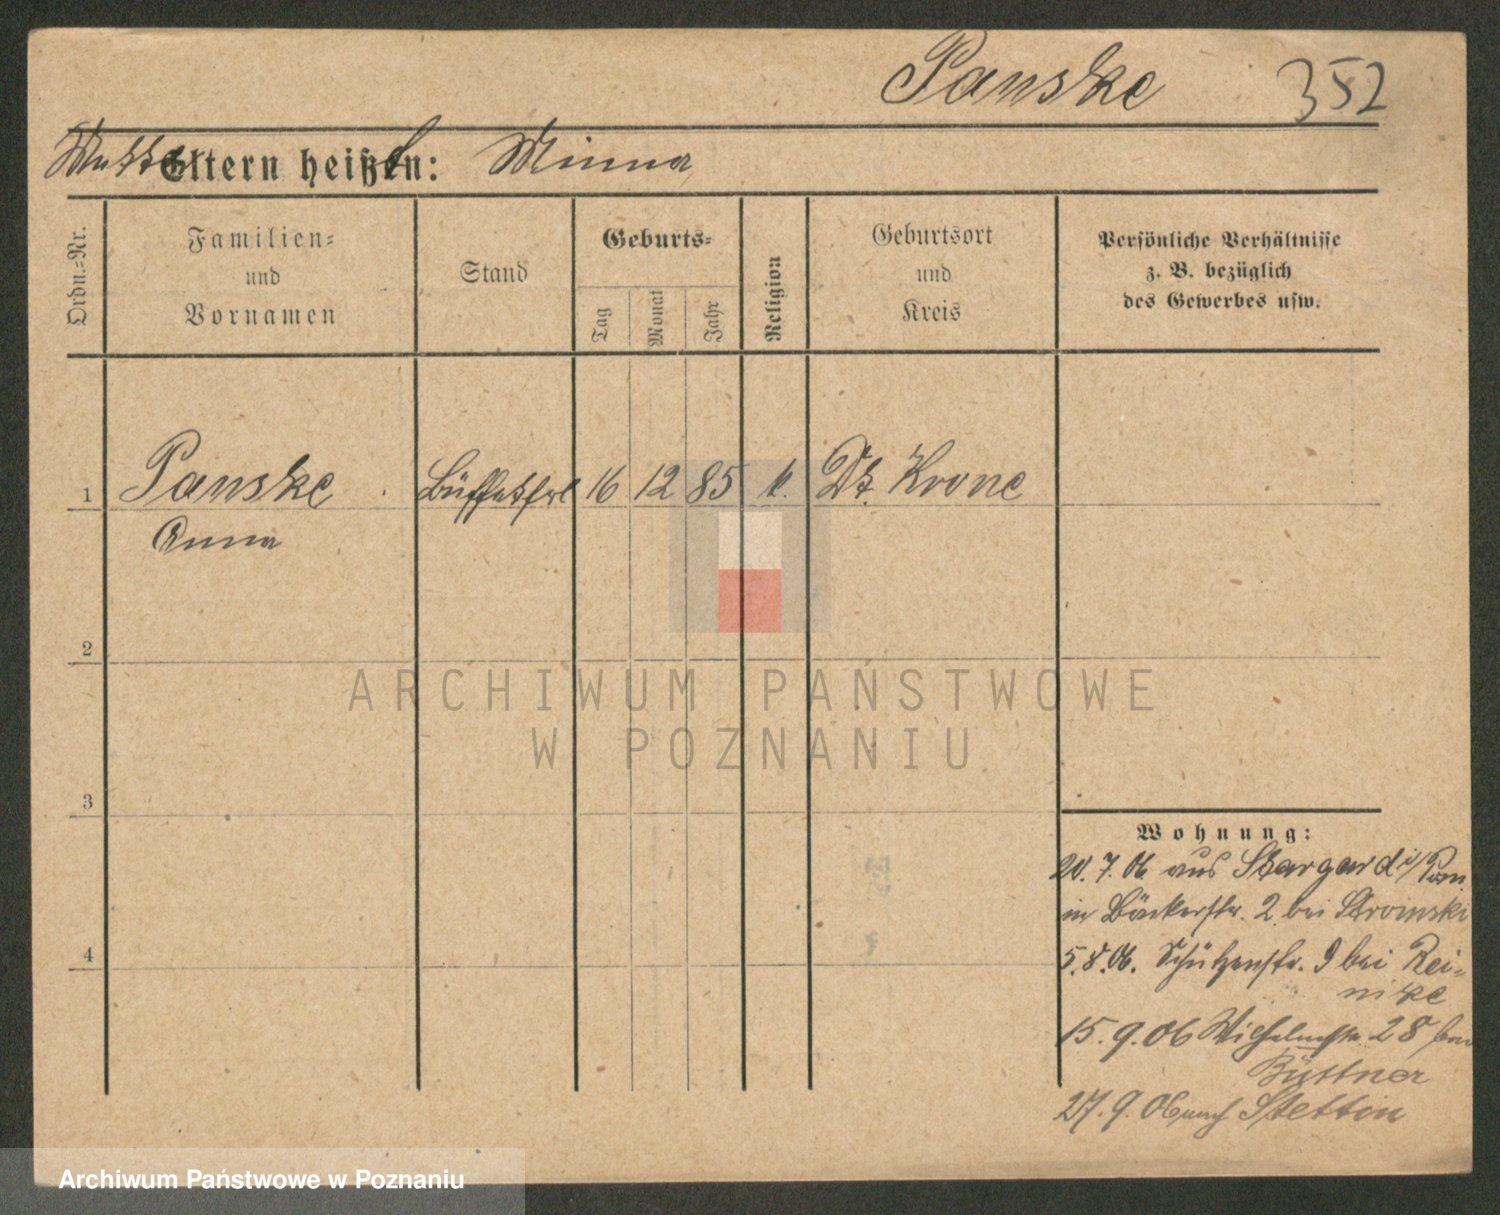 Panske 352
Mutter Eltern heißen: Minna
Ordn.-Nr.
Familien-
und
Vornamen
Stand
Geburts-
Tag
Monat
Jahr
Religion
Geburtsort
und
Kreis
Persönliche Verhältnisse
z. B. bezüglich
des Gewerbes usw.
1 Panske Büffetfrl 16 12 85 k. Dt. Krone
Anna
2
3
4
Wohnung:
20.7.06 aus Stargard i/Pom
in Bäckerstr. 2 bei Stroinski
5.8.06. Schützenstr. 9 bei Rei-
nike
15.9.06 Wilhelmstr. 28 bei
Büttner
27.9.06 nach Stettin
ARCHIWUM PAŃSTWOWE
W POZNANIU
Archiwum Państwowe w Poznaniu